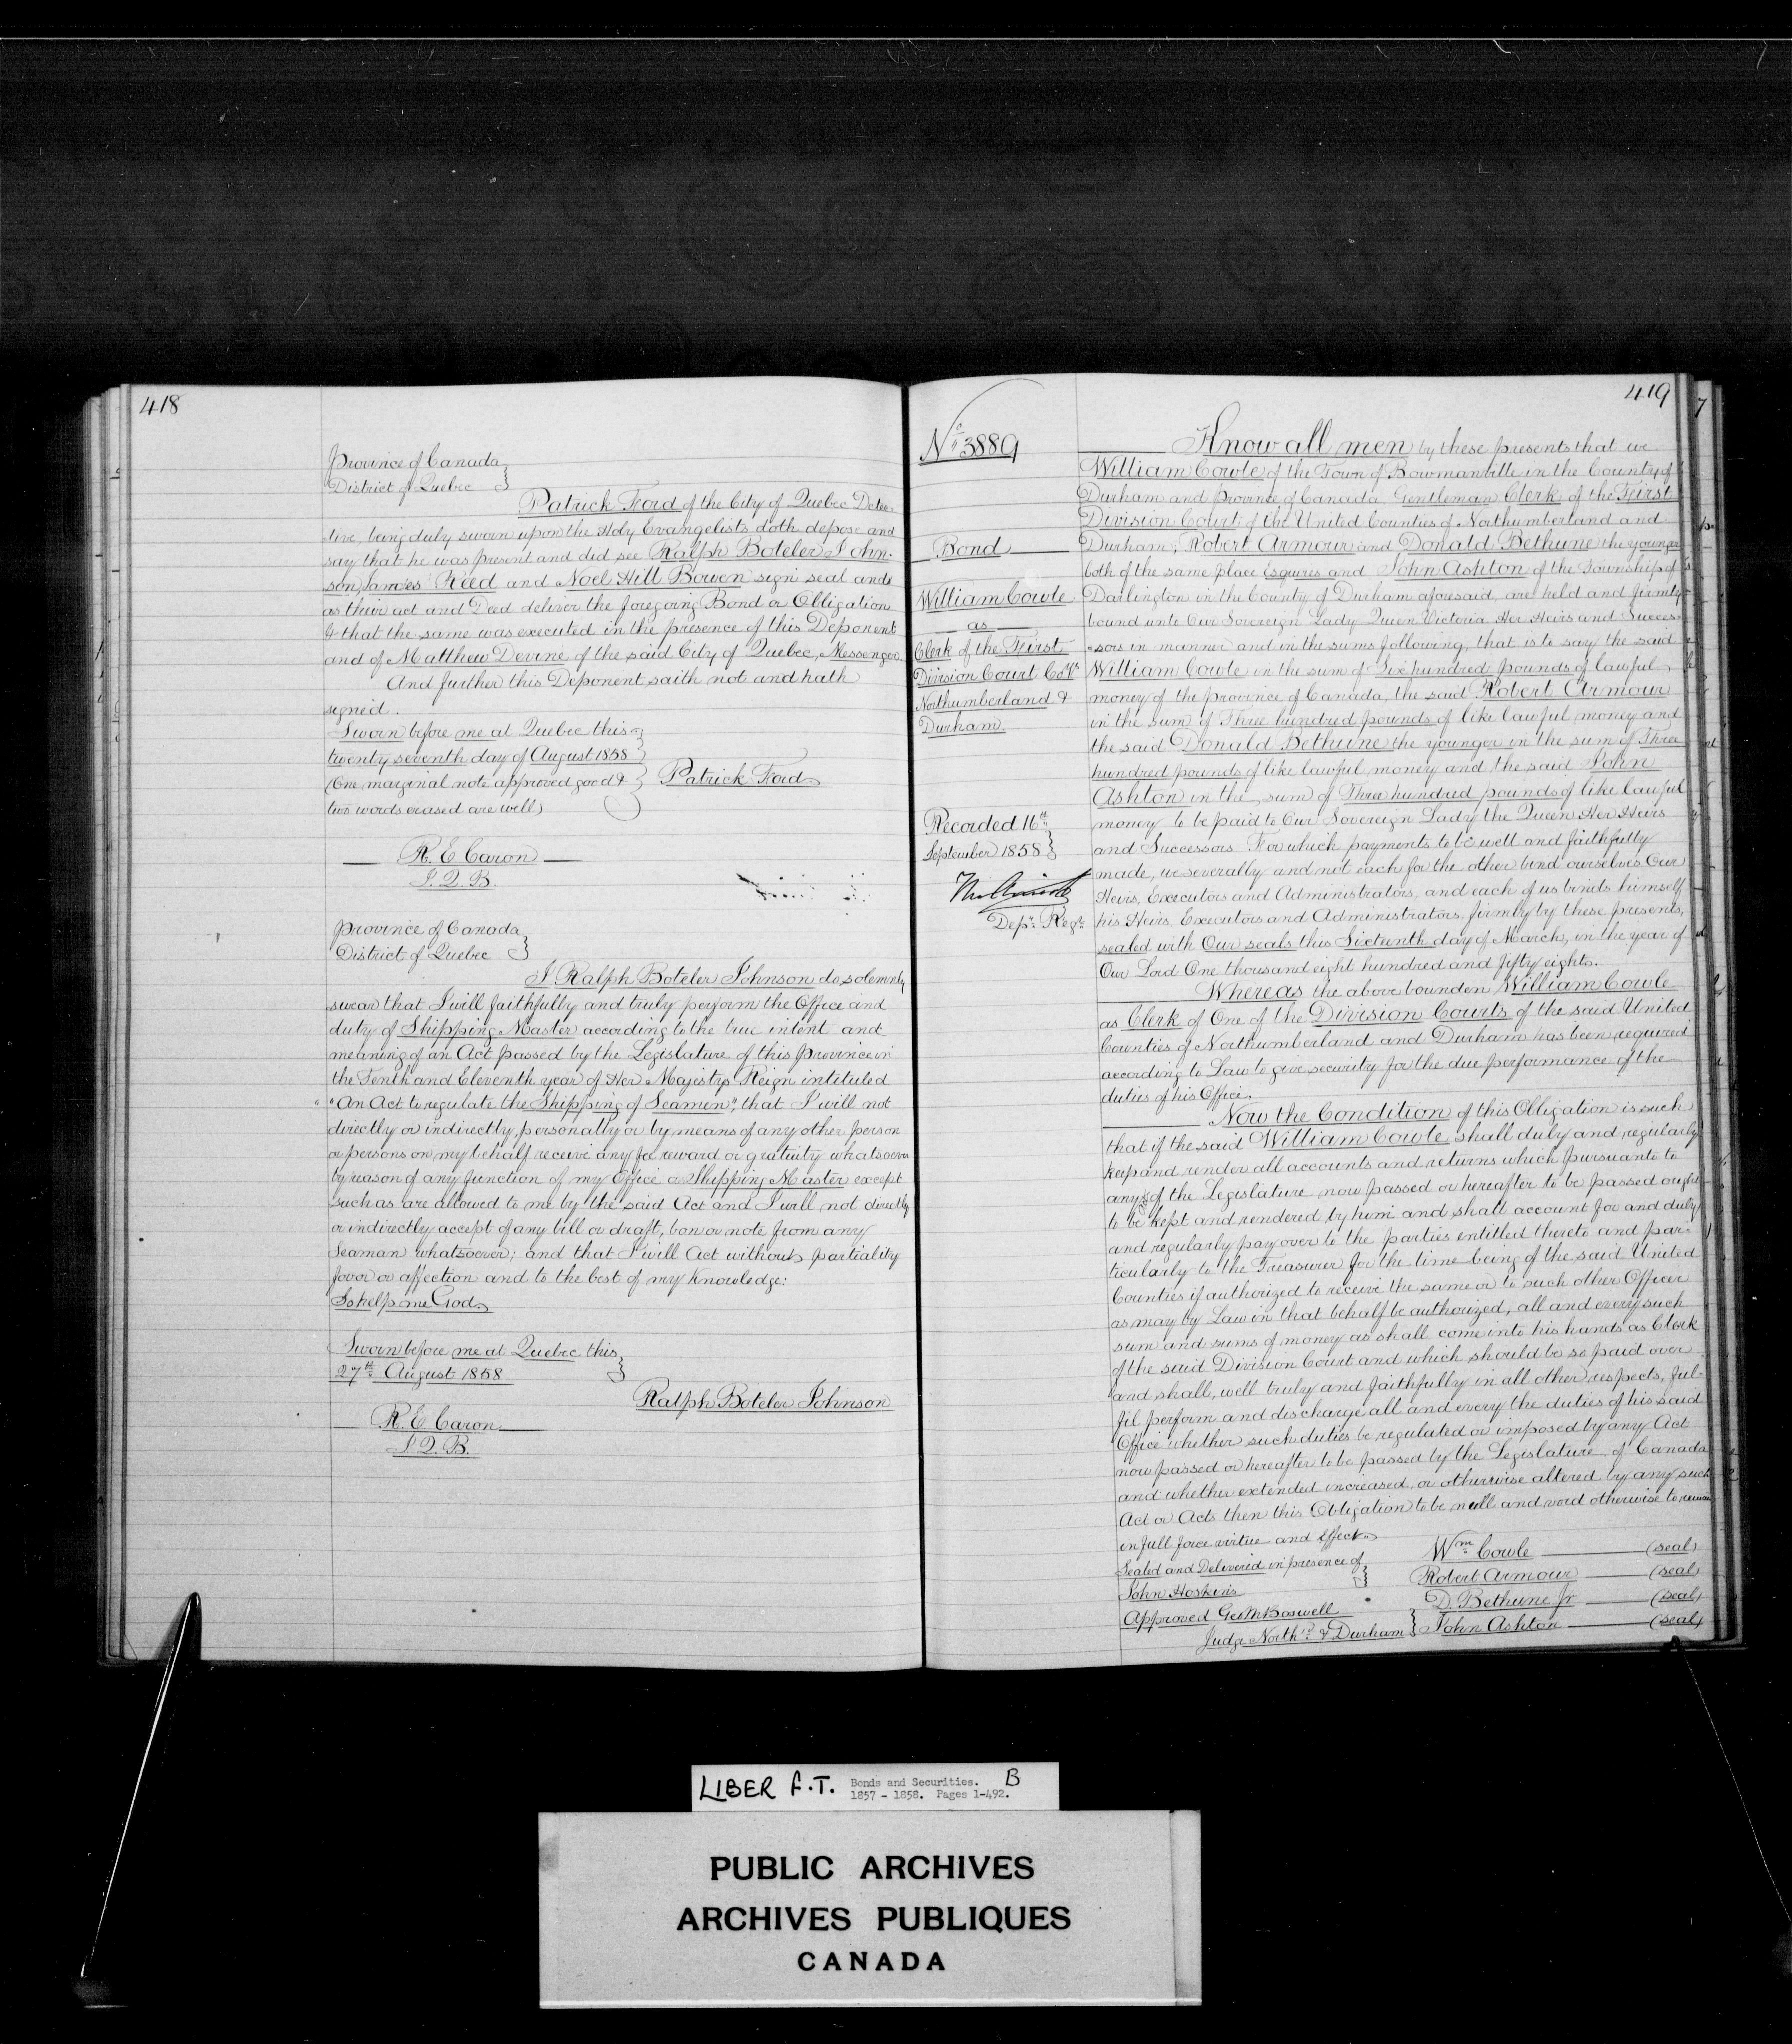 418
Province of Canada
District of Quebec
Patrick Ford of the City of Quebec Detec-
-tive, being duly sworn upon the Holy Evangelists doth depose and
say that he was present and did see Ralph Boteler John-
son, James Reed and Noel Hill Bowen sign seal and
as their act and Deed deliver the foregoing Bond or Obligation
& that the same was executed in the presence of this Deponent
and of Matthew Devine of the said City of Quebec, Messenger.
And further this Deponent saith not and hath
signed.
Sworn before me at Quebec this
twenty seventh day of August 1858
(One marginal note approved good &
two words erased are well)
Patrick Ford
R. E. Caron
J. Q. B.
Province of Canada
District of Quebec
I Ralph Boteler Johnson do solemnly
swear that I will faithfully and truly perform the Office and
duty of Shipping Master according to the true intent and
meaning of an Act passed by the Legislature of this Province in
the Tenth and Eleventh year of Her Majestys Reign intituled
"An Act to regulate the Shipping of Seamen", that I will not
directly or indirectly, personally or by means of any other person
or persons on my behalf receive any fee reward or gratuity whatsoever
by reason of any function of my Office as Shipping Master except
such as are allowed to me by the said Act and I will not directly
or indirectly accept of any bill or draft, bon or note from any
Seaman whatsoever; and that I will Act without partiality
favor or affection and to the best of my Knowledge:
So help me God
Sworn before me at Quebec this
27th August 1858
Ralph Boteler Johnson
R. E. Caron
J. Q. B.
419
No 3889
Bond
William Cowle
as
Clerk of the First
Division Court Co.ys
Northumberland &
Durham.
Recorded 16th
September 1858
Depy Regr
Know all men by these presents that we
William Cowle of the Town of Bowmanville in the County of
Durham and Province of Canada Gentleman Clerk of the First
Division Court of the United Counties of Northumberland and
Durham; Robert Armour and Donald Bethune the younger
both of the same place Esquires and John Ashton of the Township of
Darlington in the County of Durham aforesaid, are held and firmly
bound unto Our Sovereign Lady Queen Victoria Her Heirs and Succes-
=sors in manner and in the sums following, that is to say the said
William Cowle in the sum of Six hundred pounds of lawful
money of the Province of Canada, the said Robert Armour
in the sum of Three hundred pounds of like lawful money and
the said Donald Bethune the younger in the sum of Three
hundred pounds of like lawful money and the said John
Ashton in the sum of Three hundred pounds of like lawful
money to be paid to Our Sovereign Lady the Queen Her Heirs
and Successors For which payments to be well and faithfully
made, we severally and not each for the other bind ourselves Our
Heirs, Executors and Administrators, and each of us binds himself
his Heirs Executors and Administrators firmly by these presents,
sealed with Our seals this Sixteenth day of March, in the year of
Our Lord One thousand eight hundred and fifty eight.
Whereas the above bounden William Cowle
as Clerk of One of the Division Courts of the said United
Counties of Northumberland and Durham has been required
according to Law to give security for the due performance of the
duties of his Office.
Now the Condition of this Obligation is such
that if the said William Cowle shall duly and regularly
keep and render all accounts and returns which pursuant to
any of the Legislature now passed or hereafter to be passed ought
to be kept and rendered by him and shall account for and duly
and regularly pay over to the parties entitled thereto and par-
ticularly to the Treasurer for the time being of the said United
Counties if authorized to receive the same or to such other Officer
as may by Law in that behalf be authorized, all and every such
sum and sums of money as shall come into his hands as Clerk
of the said Division Court and which should be so paid over
and shall, well truly and faithfully in all other respects, ful-
fil perform and discharge all and every the duties of his said
Office whether such duties be regulated or imposed by any Act
now passed or hereafter to be passed by the Legislature of Canada
and whether extended increased, or otherwise altered by any such
Act or Acts then this Obligation to be null and void otherwise to remain
in full force virtue and effect.
Sealed and Delivered in presence of
John Hoskins
Approved Geo M Boswell
Judge North'd & Durham
Wm Cowle (seal)
Robert Armour (seal)
D. Bethune Jr (seal)
John Ashton (seal)
LIBER F.T. Bonds and Securities. B
1857 - 1858. Pages 1-492.
PUBLIC ARCHIVES
ARCHIVES PUBLIQUES
CANADA